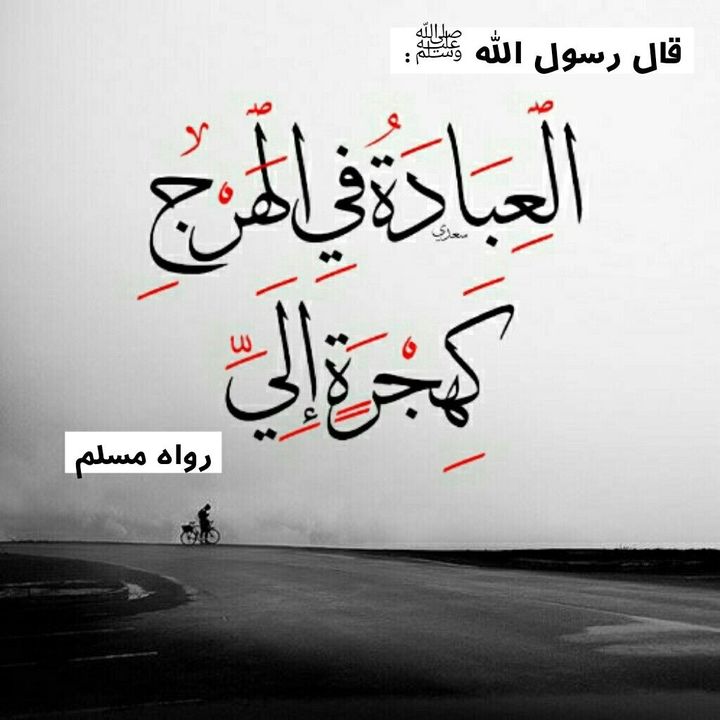 قال رسول الله ﷺ :
العِبَادَةُ فِي الهَرْجِ
سعدي
كَهِجْرَةٍ إِلَيَّ
رواه مسلم